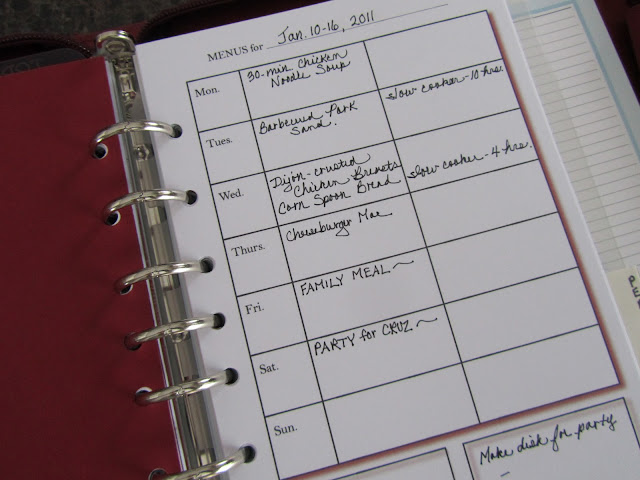 MENUS for Jan. 10-16, 2011
Mon.
30-min. Chicken
Noodle Soup
Tues.
Barbecued Pork
Sand.
slow cooker - 10 hrs.
Wed.
Dijon-crusted
Chicken Breasts
Corn Spoon Bread
slow cooker - 4 hrs.
Thurs.
Cheeseburger Mac
Fri.
FAMILY MEAL ~
Sat.
PARTY for CRUZ ~
Sun.
Make dish for party